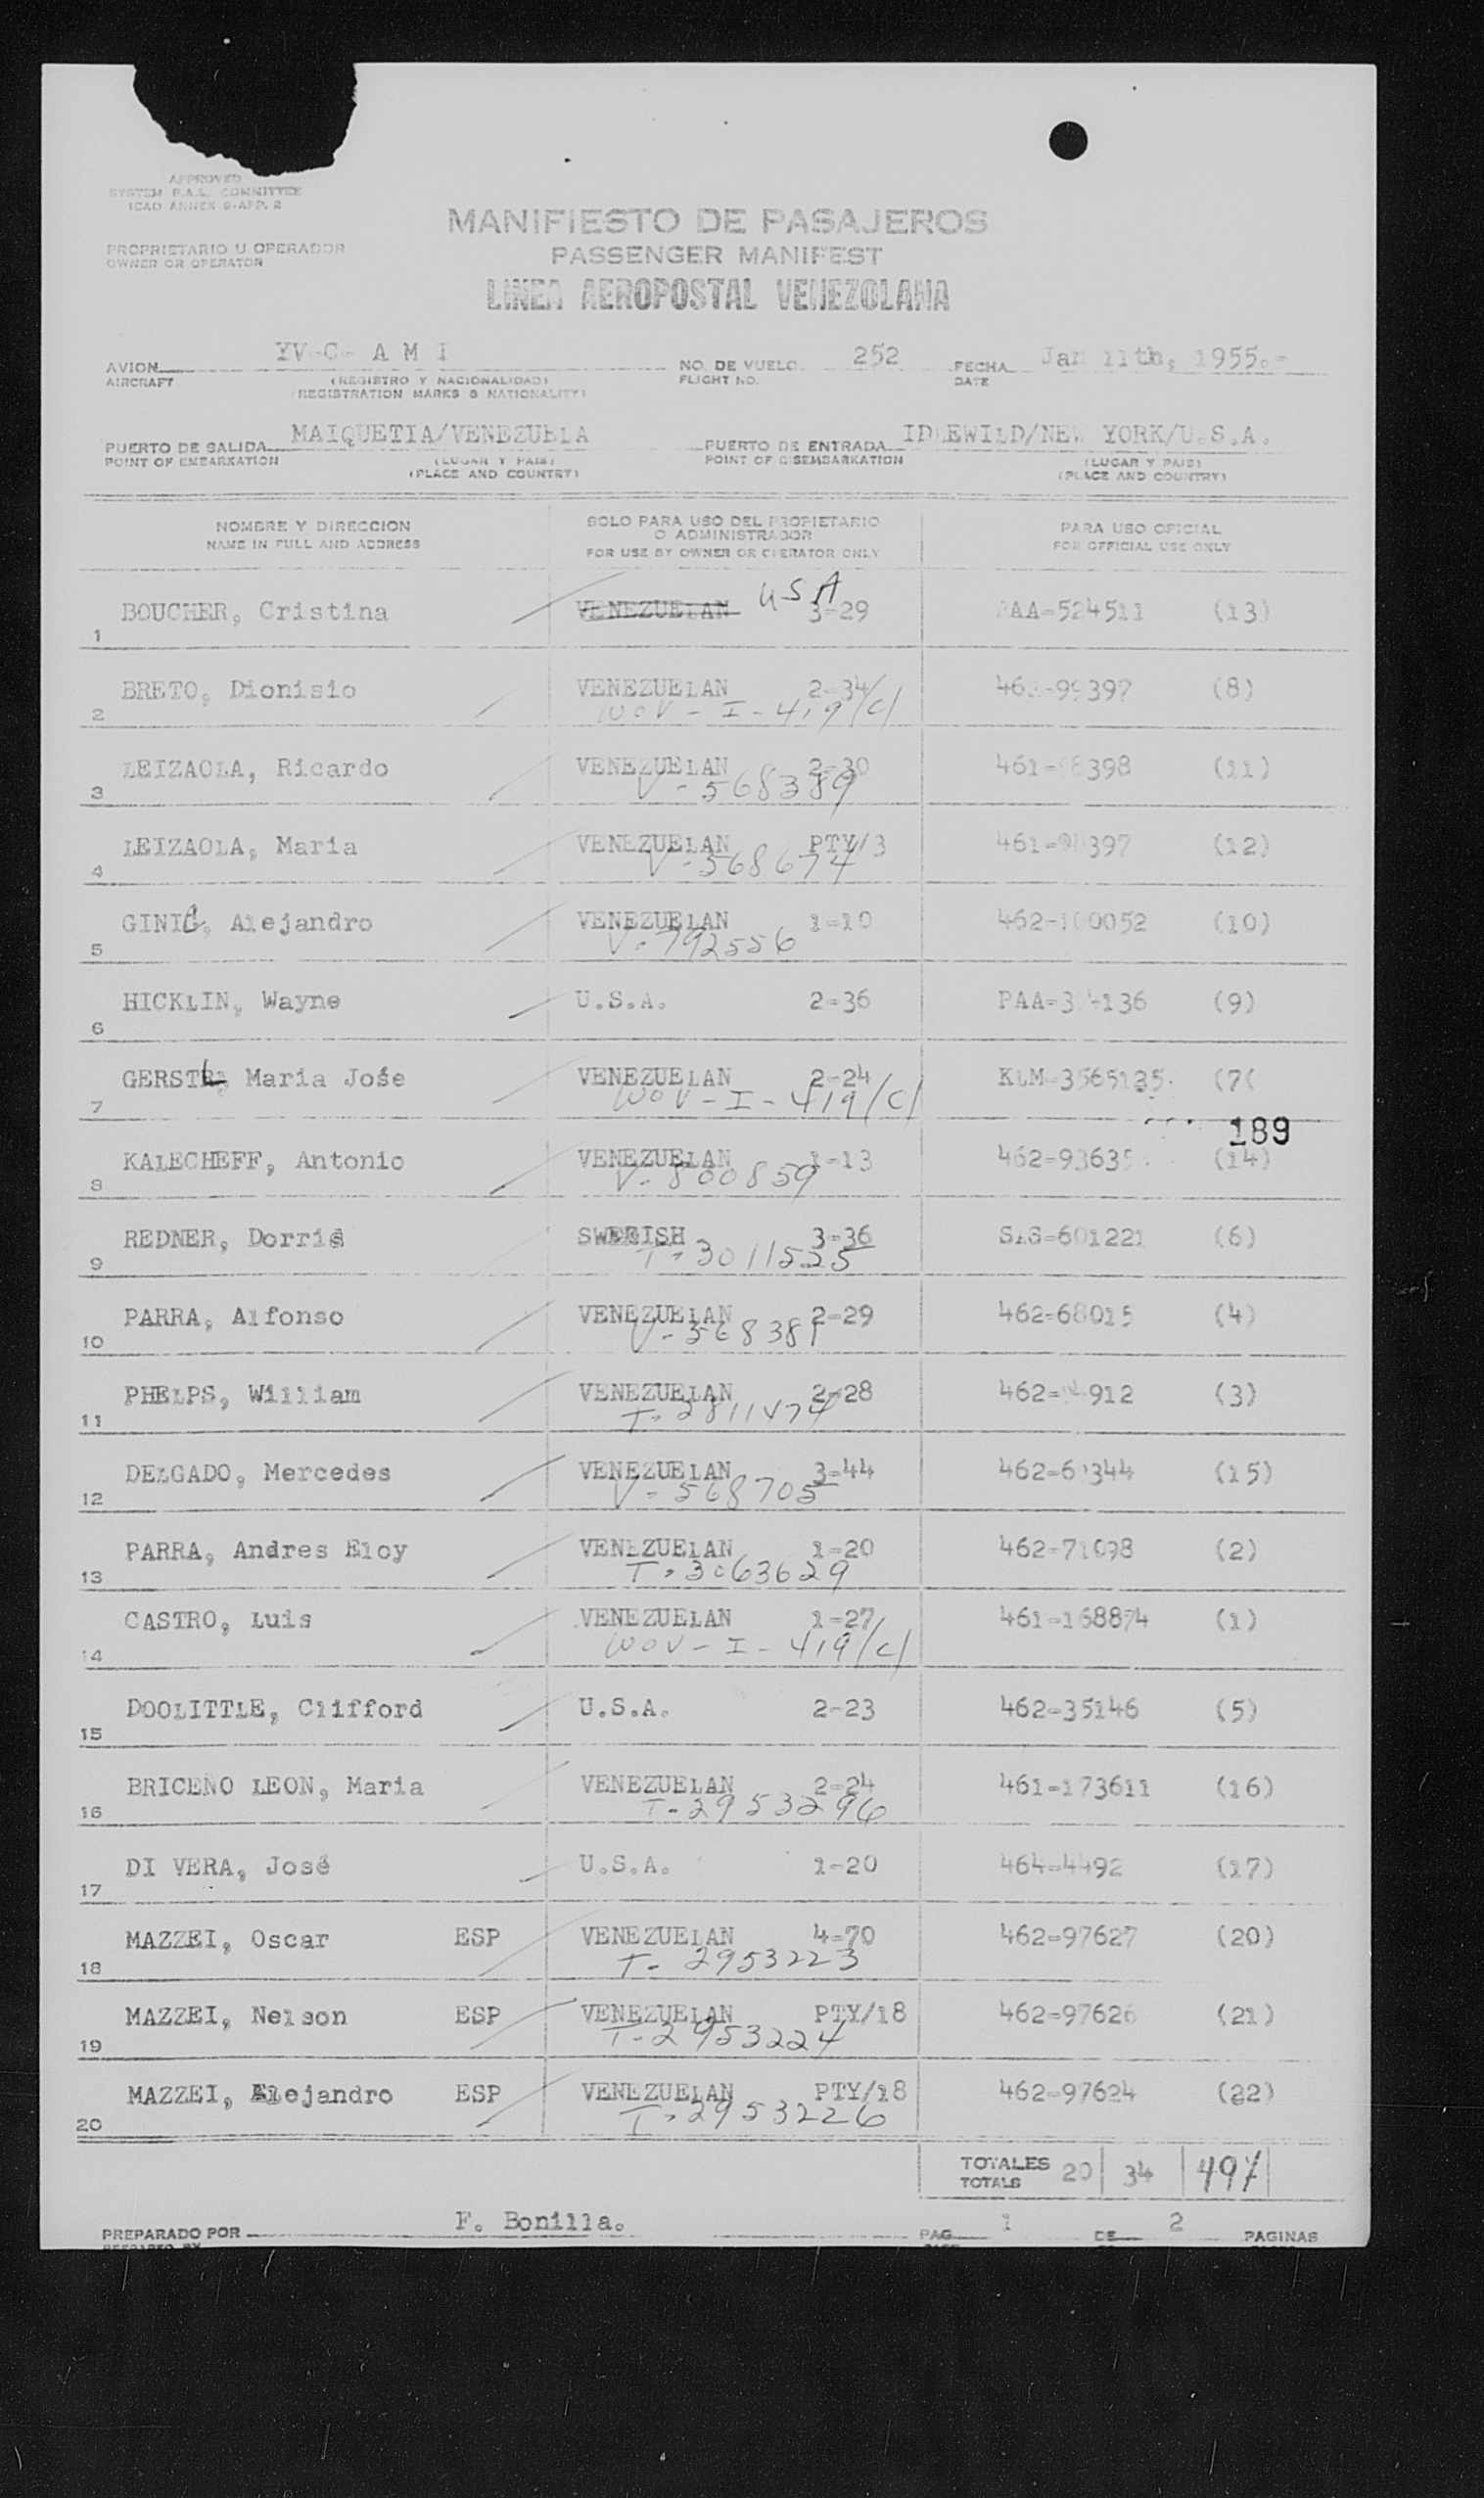 APPROVED
SYSTEM F.A.L. COMMITTEE
ICAO ANNEX 9-APP. 2
MANIFIESTO DE PASAJEROS
PROPRIETARIO U OPERADOR
OWNER OR OPERATOR
PASSENGER MANIFEST
LINEA AEROPOSTAL VENEZOLANA
AVION YV-C- A M I NO. DE VUELO 252 FECHA Jan 11th, 1955.-
AIRCRAFT (REGISTRO Y NACIONALIDAD) FLIGHT NO. DATE
(REGISTRATION MARKS & NATIONALITY)
PUERTO DE SALIDA MAIQUETIA/VENEZUELA PUERTO DE ENTRADA IDLEWILD/NEW YORK/U.S.A.
POINT OF EMBARKATION (LUGAR Y PAIS) POINT OF DISEMBARKATION (LUGAR Y PAIS)
(PLACE AND COUNTRY) (PLACE AND COUNTRY)
NOMBRE Y DIRECCION SOLO PARA USO DEL PROPIETARIO PARA USO OFICIAL
O ADMINISTRADOR
NAME IN FULL AND ADDRESS FOR USE BY OWNER OR OPERATOR ONLY FOR OFFICIAL USE ONLY
1 BOUCHER, Cristina VENEZUELAN USA 3-29 PAA-524511 (13)
2 BRETO, Dionisio VENEZUELAN 2-34 (8)
WOV - I - 419/c/
3 LEIZAOLA, Ricardo VENEZUELAN 2-30 (11)
V - 568389
4 LEIZAOLA, Maria VENEZUELAN PTY/3 (12)
V - 568674
5 Alejandro VENEZUELAN 1-10 462-100052 (10)
V - 792556
6 HICKLIN, Wayne U.S.A. 2-36 (9)
7 GERSTL Maria José VENEZUELAN 2-24 KLM-3565135 (7(
WOV - I - 419/c/
189
8 KALECHEFF, Antonio VENEZUELAN 1-13 (14)
V - 800859
9 REDNER, Dorris SWEDISH 3-36 SAS-601221 (6)
T - 3011525
10 PARRA, Alfonso VENEZUELAN 2-29 462-68015 (4)
V - 568381
11 PHELPS, William VENEZUELAN 2-28 (3)
T - 2811474
12 DELGADO, Mercedes VENEZUELAN 3-44 (15)
V - 568705
13 PARRA, Andres Eloy VENEZUELAN 1-20 462-71098 (2)
T - 3063629
14 CASTRO, Luis VENEZUELAN 1-27 461-168874 (1)
WOV - I - 419/c/
15 DOOLITTLE, Clifford U.S.A. 2-23 462-35146 (5)
16 BRICENO LEON, Maria VENEZUELAN 2-24 461-173611 (16)
T - 2953296
17 DI VERA, José U.S.A. 1-20 464-4492 (17)
18 MAZZEI, Oscar ESP VENEZUELAN 4-70 462-97627 (20)
T - 2953223
19 MAZZEI, Nelson ESP VENEZUELAN PTY/18 462-97626 (21)
T - 2953224
20 MAZZEI, Alejandro ESP VENEZUELAN PTY/18 462-97624 (22)
T - 2953226
TOTALES 20 34 497
TOTALS
PREPARADO POR F. Bonilla. PAG. 1 DE 2 PAGINAS